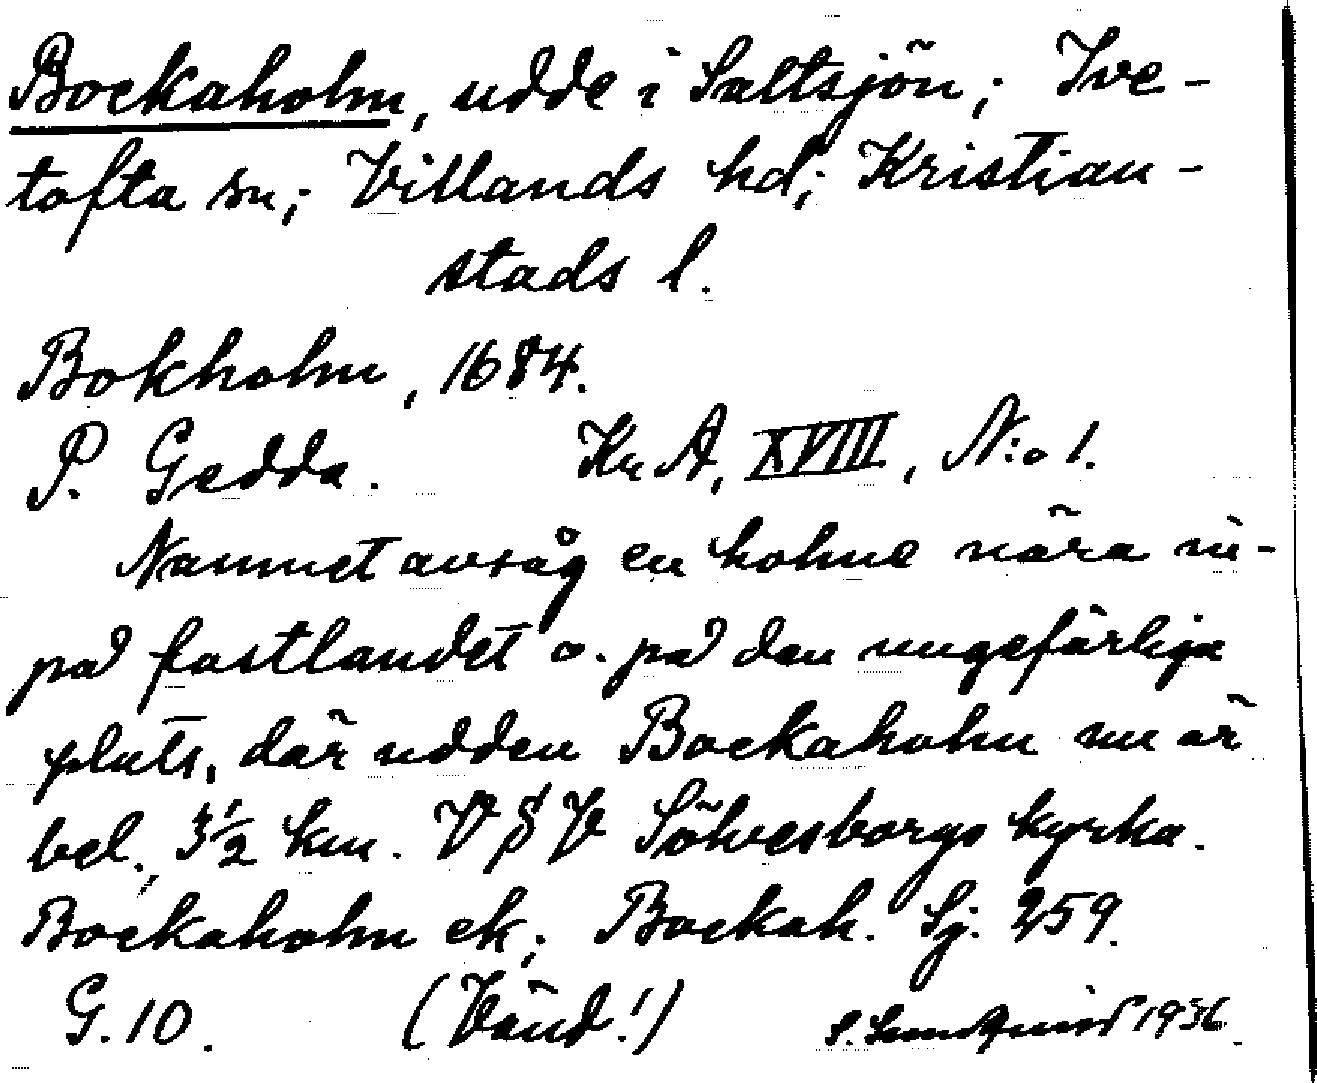 Bockaholm, udde i Saltsjön; Ive-
tofta sn; Villands hd; Kristian-
stads l.
Bokholm, 1684.
P. Gedda. Kr A, XVIII, N:o 1.
Namnet avsåg en holme nära in-
på fastlandet o. på den ungefärliga
plats, där udden Bockaholm nu är
bel., 3½ km. V § V Sölvesborgs kyrka.
Bockaholm ek; Bockah. Sj. 259.
G. 10. (Vänd!) S. Sundquist 1936